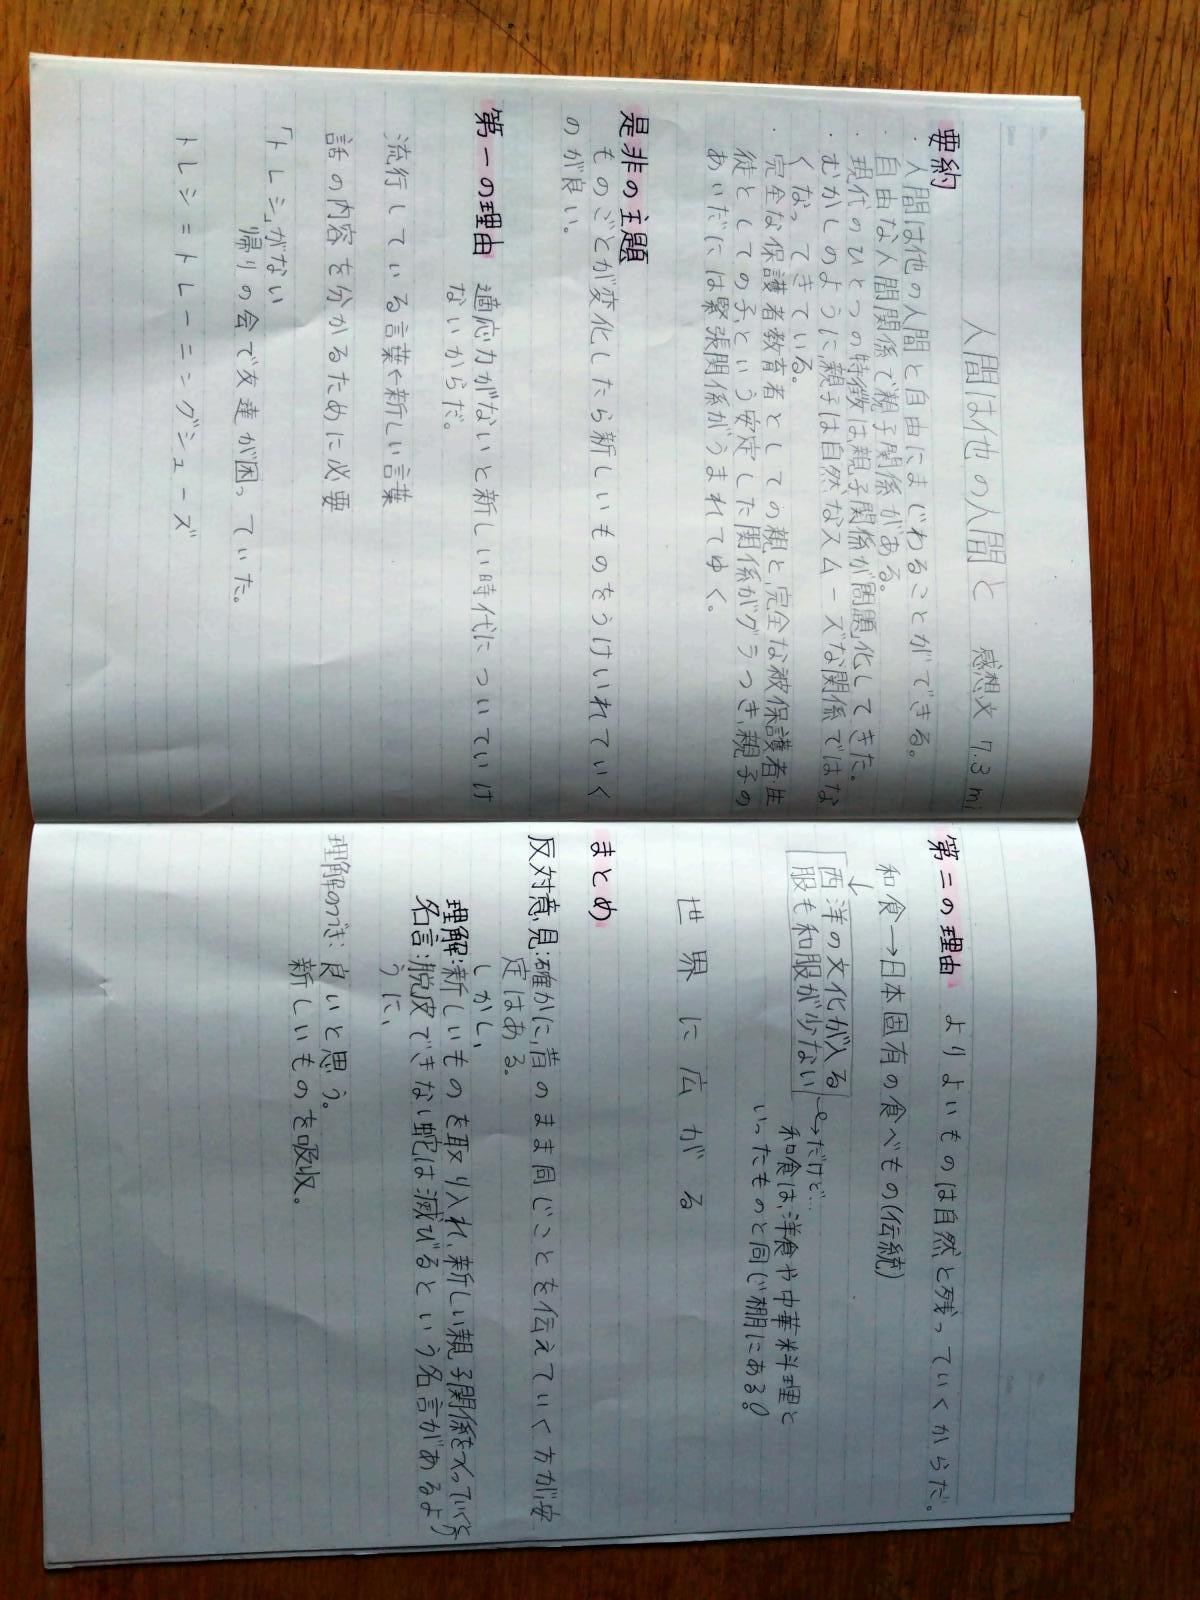 人間は他の人間と 感想文 7.3 mi
要約
・人間は他の人間と自由にまじわることができる。
・自由な人間関係で親子関係がある。
・現代のひとつの特徴は、親子関係が問題化してきた。
・むかしのように、親子は自然なスムーズな関係ではな
くなってきている。
・完全な保護者、教育者としての親と、完全な被保護者、生
徒としての子、という安定した関係がグラつき、親子の
あいだには緊張関係がうまれてゆく。
是非の主題
ものごとが変化したら新しいものをうけいれていく
のが良い。
第一の理由 適応力がないと新しい時代についていけ
ないからだ。
流行している言葉や新しい言葉
話の内容を分かるために必要
「トレシ」がない
帰りの会で友達が困っていた。
トレシ=トレーニングシューズ
第二の理由 よりよいものは自然と残っていくからだ。
和食→日本固有の食べもの(伝統)
↓
西洋の文化が入る
服も和服が少ない
→だけど…
和食は、洋食や中華料理と
いったものと同じ棚にある。
世界に広がる
まとめ
反対意見:確かに、昔のまま同じことを伝えていく方が、安
定はある。
しかし、
理解:新しいものを取り入れ、新しい親子関係をつくっていくと
名言:脱皮できない蛇は滅びるという名言があるよ
うに、
理解のつづき:良いと思う。
新しいものを吸収。